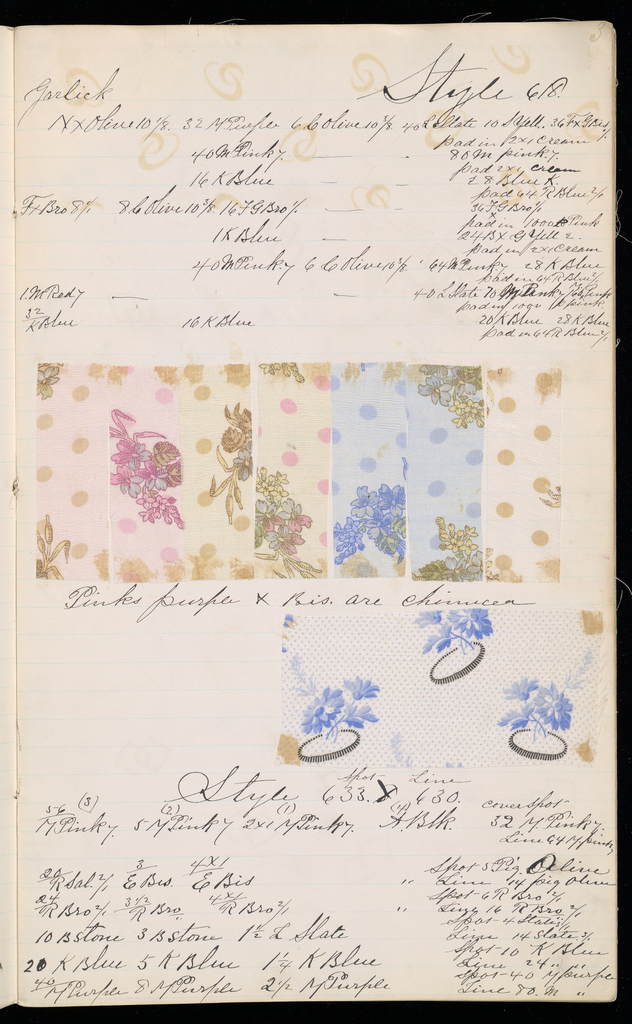 3
Garlick Style 618.
N x Olive 10 1/8. 32 M Purple 6 L Olive 10 3/8 40 L Slate 10 S Yell. 36 F x G Bis.
pad in 12x1 Cream
40 M Pinky. — - 80 M pinky.
pad 2x1 cream
16 K Blue — 28 Blue K.
pad 64 R Blue 2/1
F x Bro 8/1 8 L Olive 10 3/8 16 F G Bro/1 — 36 F G Bro/1
pad in 100 Pink
1 K Blue — 24 B x G Yell 2
pad in 12x1 Cream
40 M Pinky 6 L Olive 10 3/8 64 M Pinky 28 K Blue
pad in 64 R Blue 2/1
1. M Red 7 — — 40 L Slate 70 M Pinky
pad in 100 pink
32 K Blue 16 K Blue 20 K Blue 28 K Blue
pad in 64 R Blue 2/1
Pinks purple x Bis. are
Spot Line
Style 633. x 630.
56 (3) (2) (1) cover spot
M Pinky. 5 M Pinky 2x1 M Pinky. A Blk. 32 M Pinky.
Line 64 M pinky
20 R Sal. 2/1 3 E Bis. 4x1 E Bis Spot 5 Pig Olive
" Line 14 pig Olive
24 R Bro 2/1 3 1/2 R Bro. 4x1 R Bro 2/1 Spot 6 R Bro 2/1
" Line 16 R Bro 2/1
10 B stone 3 B stone 1 1/2 L Slate Spot 4 Slate 2/1
Line 14 Slate 2/1
20 K Blue 5 K Blue 1 1/4 K Blue Spot 10 K Blue
Line 24 " "
40 M Purple 8 M Purple 2 1/2 M Purple Spot 40 M purple
Line 80. M "